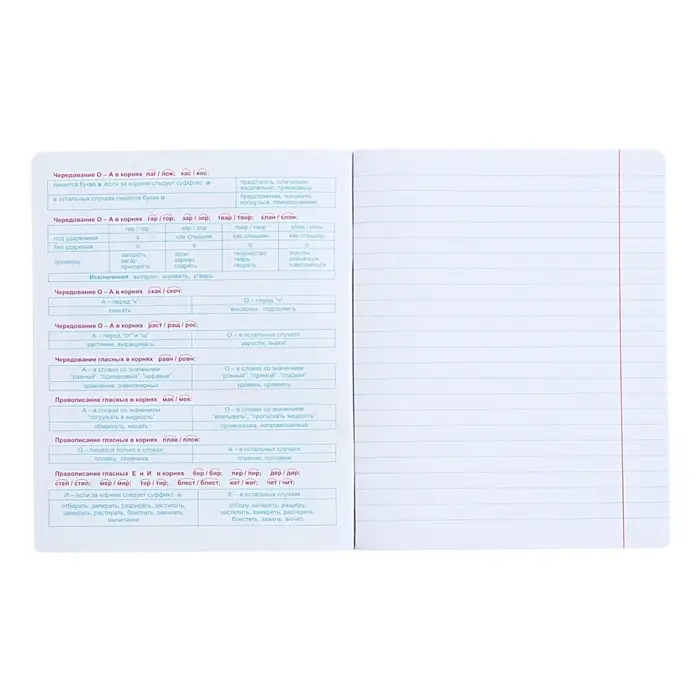 Чередование О – А в корнях лаг / лож; кас / кос:
пишется буква а, если за корнем следует суффикс -а-
предлагать, слагаемое,
касательная, прикасаясь
в остальных случаях пишется буква о
предложение, положить,
коснуться, прикосновение
Чередование О – А в корнях гар / гор; зар / зор; твар / твор; клан / клон:
гар / гор зар / зор твар / твор клан / клон
под ударением а как слышим как слышим как слышим
без ударения о а о о
примеры
загореть
загар
пригореть
зори
зарево
озарять
творчество
тварь
творить
поклоны
кланяться
наклоняться
Исключения: выгарки, зоревать, утварь.
Чередование О – А в корнях скак / скоч:
А – перед "к" О – перед "ч"
скакать выскочка, подскочить
Чередование О – А в корнях раст / ращ / рос:
А – перед "ст" и "щ" О – в остальных случаях
растение, выращивать заросли, вырос
Чередование гласных в корнях равн / ровн:
А – в словах со значением
"равный", "одинаковый", "наравне"
О – в словах со значением
"ровный", "прямой", "гладкий"
сравнение, равномерный уровень, сровнять
Правописание гласных в корнях мак / мок:
А – в словах со значением
"погружать в жидкость"
О – в словах со значением
"впитывать", "пропускать жидкость"
обмакнуть, макать промокашка, непромокаемый
Правописание гласных в корнях плав / плов:
О – пишется только в словах А – в остальных случаях
пловец, пловчиха плавник, поплавок
Правописание гласных Е и И в корнях бер / бир; пер / пир; дер / дир;
стел / стил; мер / мир; тер / тир; блест / блист; жег / жиг; чет / чит:
И – если за корнем следует суффикс -а- Е – в остальных случаях
отбирать, запирать, раздирать, застилать,
замирать, растирать, блистать, зажигать,
вычитание
отберу, запереть, раздеру,
застелить, замереть, растереть,
блестеть, зажечь, вычел